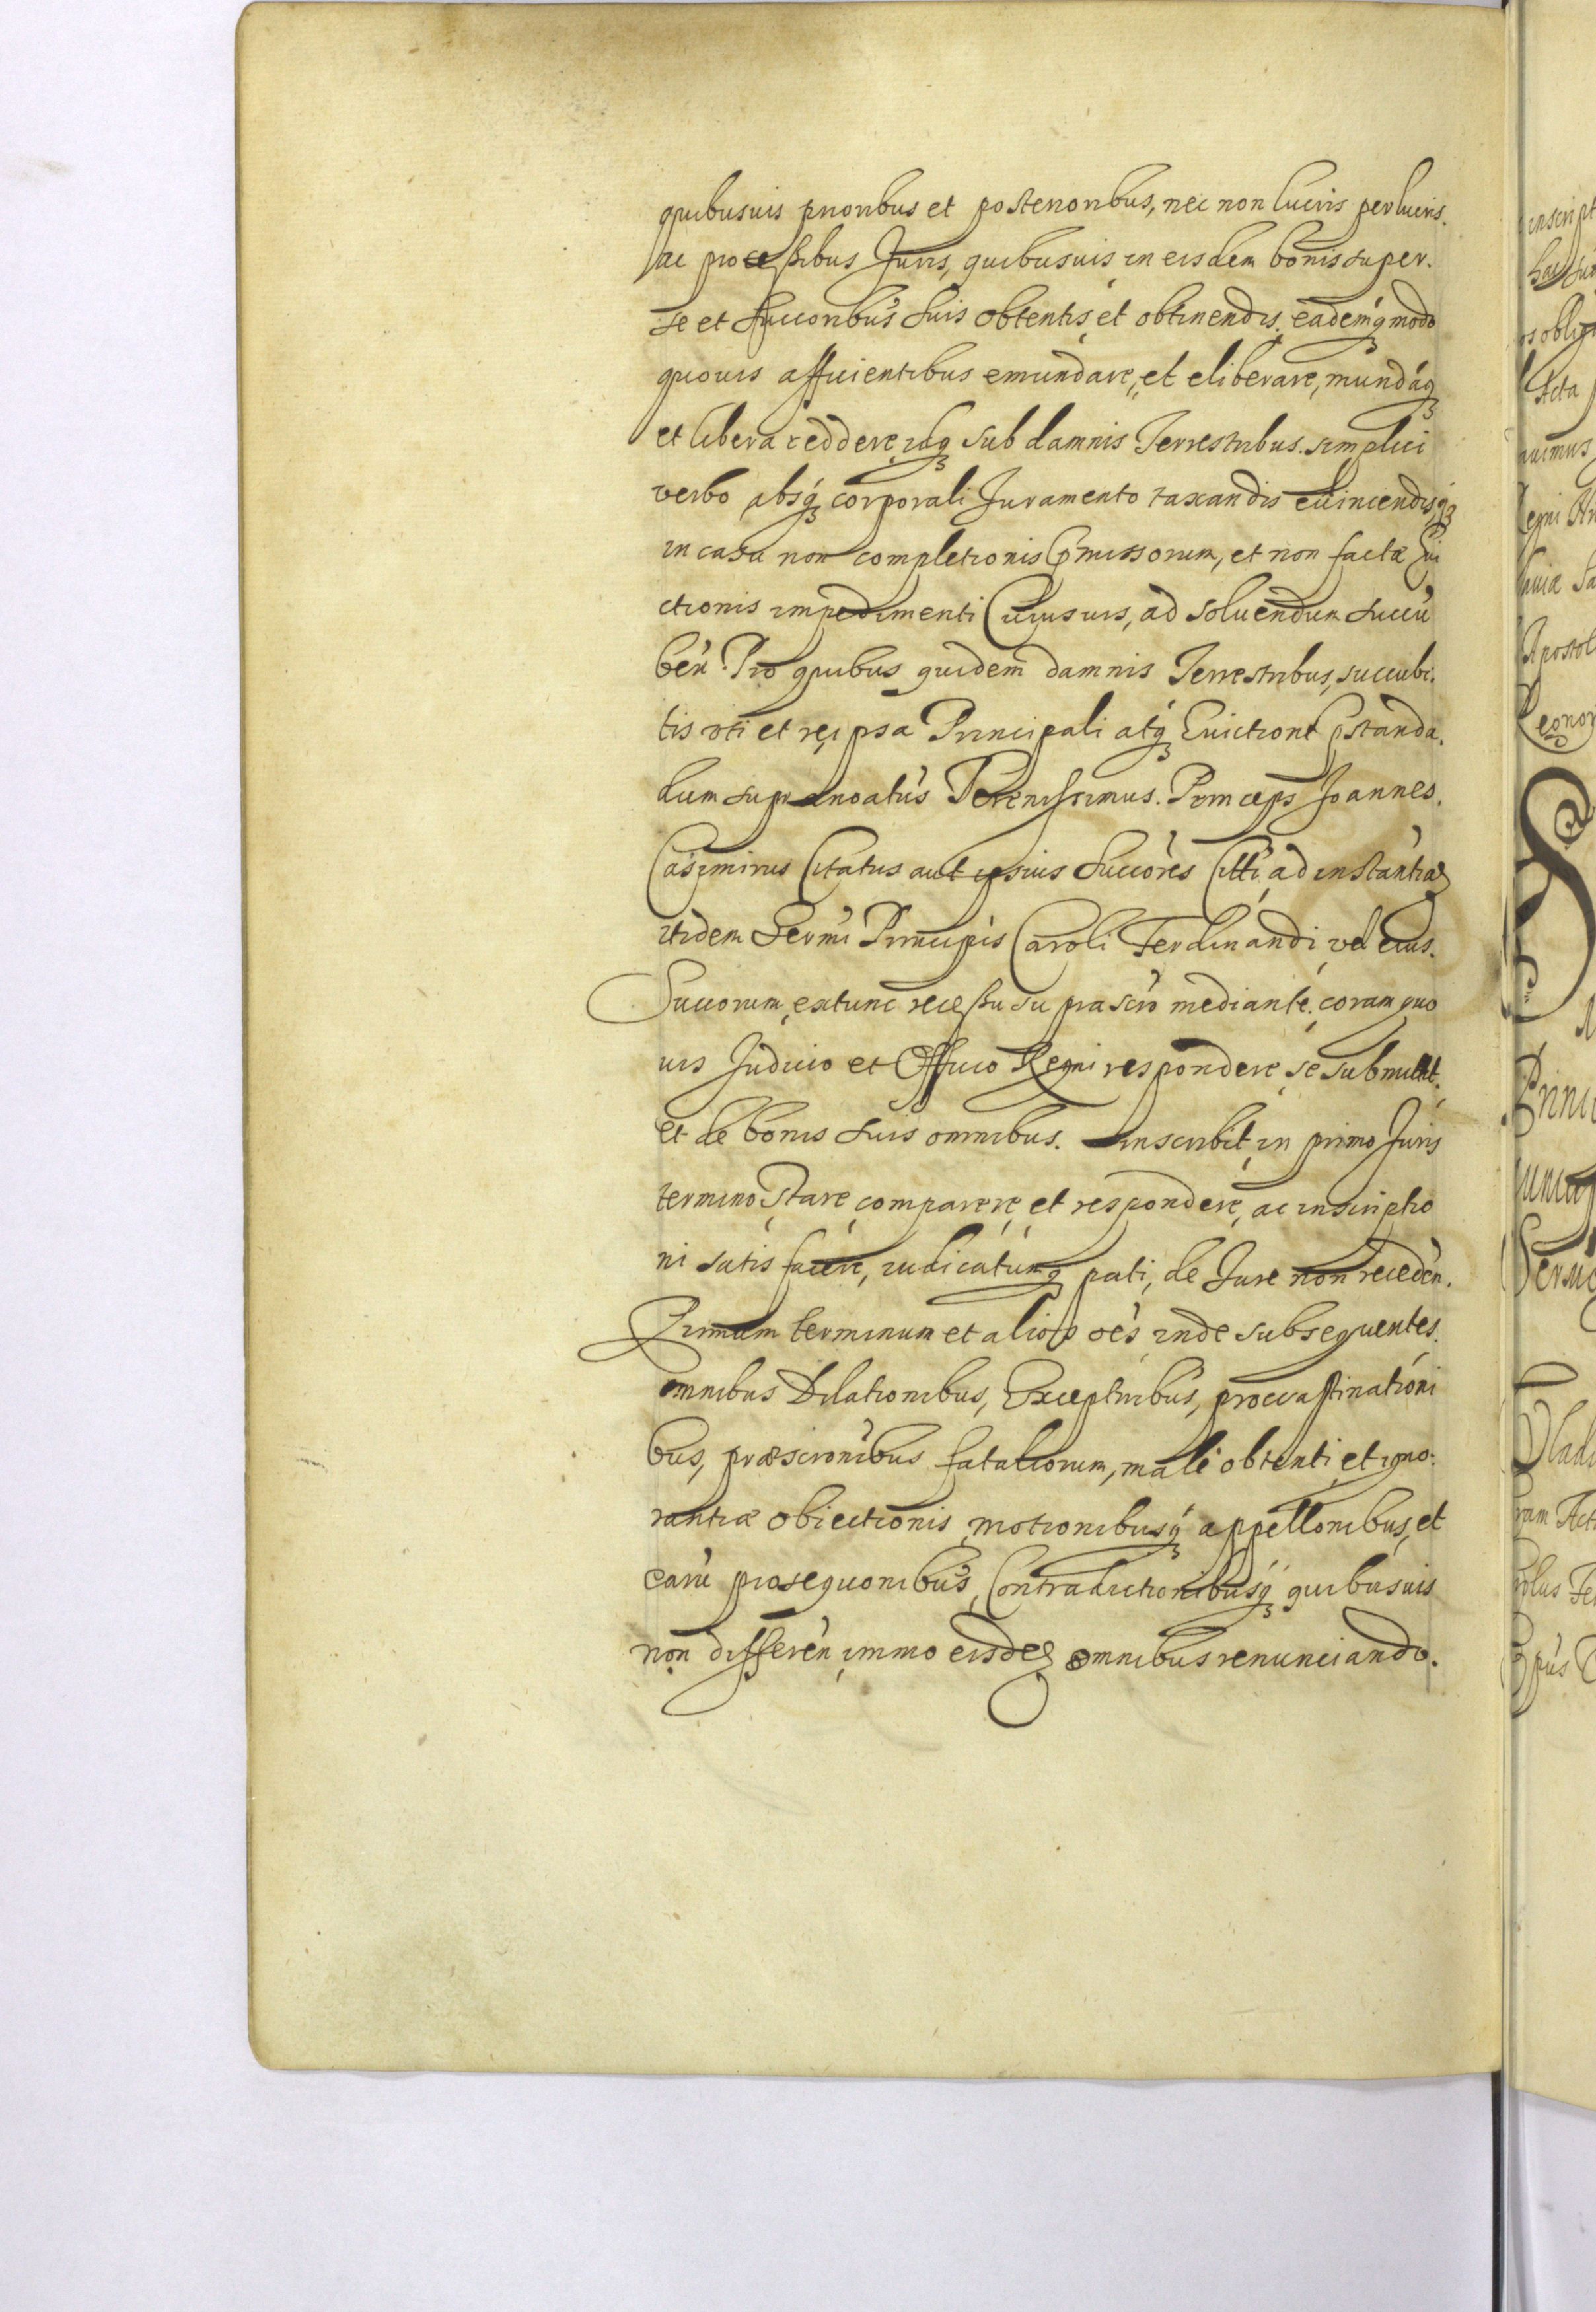 quibusuis prioribus et posterioribus, nec non lucris perlucris.
ac processibus Juris, quibusuis in eisdem bonis super.
se et succoribus suis obtentis, et obtinendis, eademq modo
quouis afficientibus emundare, et eliberare, mundaq
et libera reddere, idq sub damnis Terrestribus. simplici
verbo absq corporali Juramento taxandis euincendisq
in casu non completionis pmissorum, et non factæ Eui
ctionis impedimenti Cuiusuis, ad soluendum succu
ben. Pro quibus quidem damnis Terrestribus, succubi.
tis uti et re ipsa Principali atq Euictione pstanda.
dum supranoatus Serenissimus. Princeps Joannes.
Casimirus Citatus aut ipsius Succores Citti ad instantiam
itidem Sermi Principis Caroli Ferdinandi vel eius.
Succorum, extunc recessu suprascro mediante, coram quo
uis Judicio et Officio Regni respondere, se submittit,
et de bonis suis omnibus. inscribit, in primo Juris
termino, Stare, comparere, et respondere, ac inscriptio
ni satis facere, iudicatumq pati, de Jure non receden.
Primum terminum et alios oes inde subsequentes.
omnibus Dilationibus, Exceptnibus, procrastinationi
bus, præscronibus fataliorum, male obtenti, et igno:
rantiæ obiectionis, motionibusq appellonibus, et
earu prosequonibus, Contradictionibusq quibusuis
non differen immo eisdem omnibus renunciando.